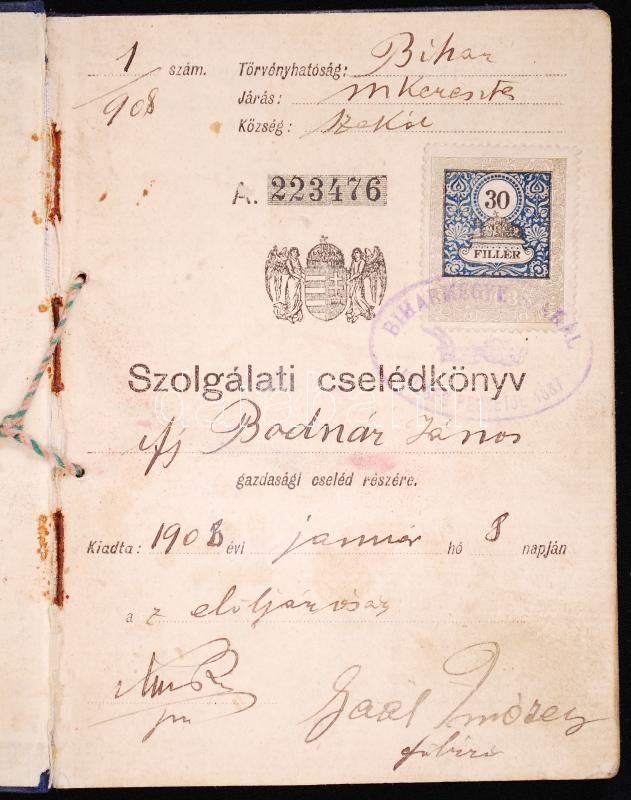 1 szám. Törvényhatóság: Bihar
908 Járás: mKeresztes
Község:
A. 223476
30
FILLÉR
BIHARMEGYE
Szolgálati cselédkönyv
Ifj Bodnár János
gazdasági cseléd részére.
Kiadta: 1908 évi január hó 8 napján
a z elöljáróság
Gaál Mózes
főbíró